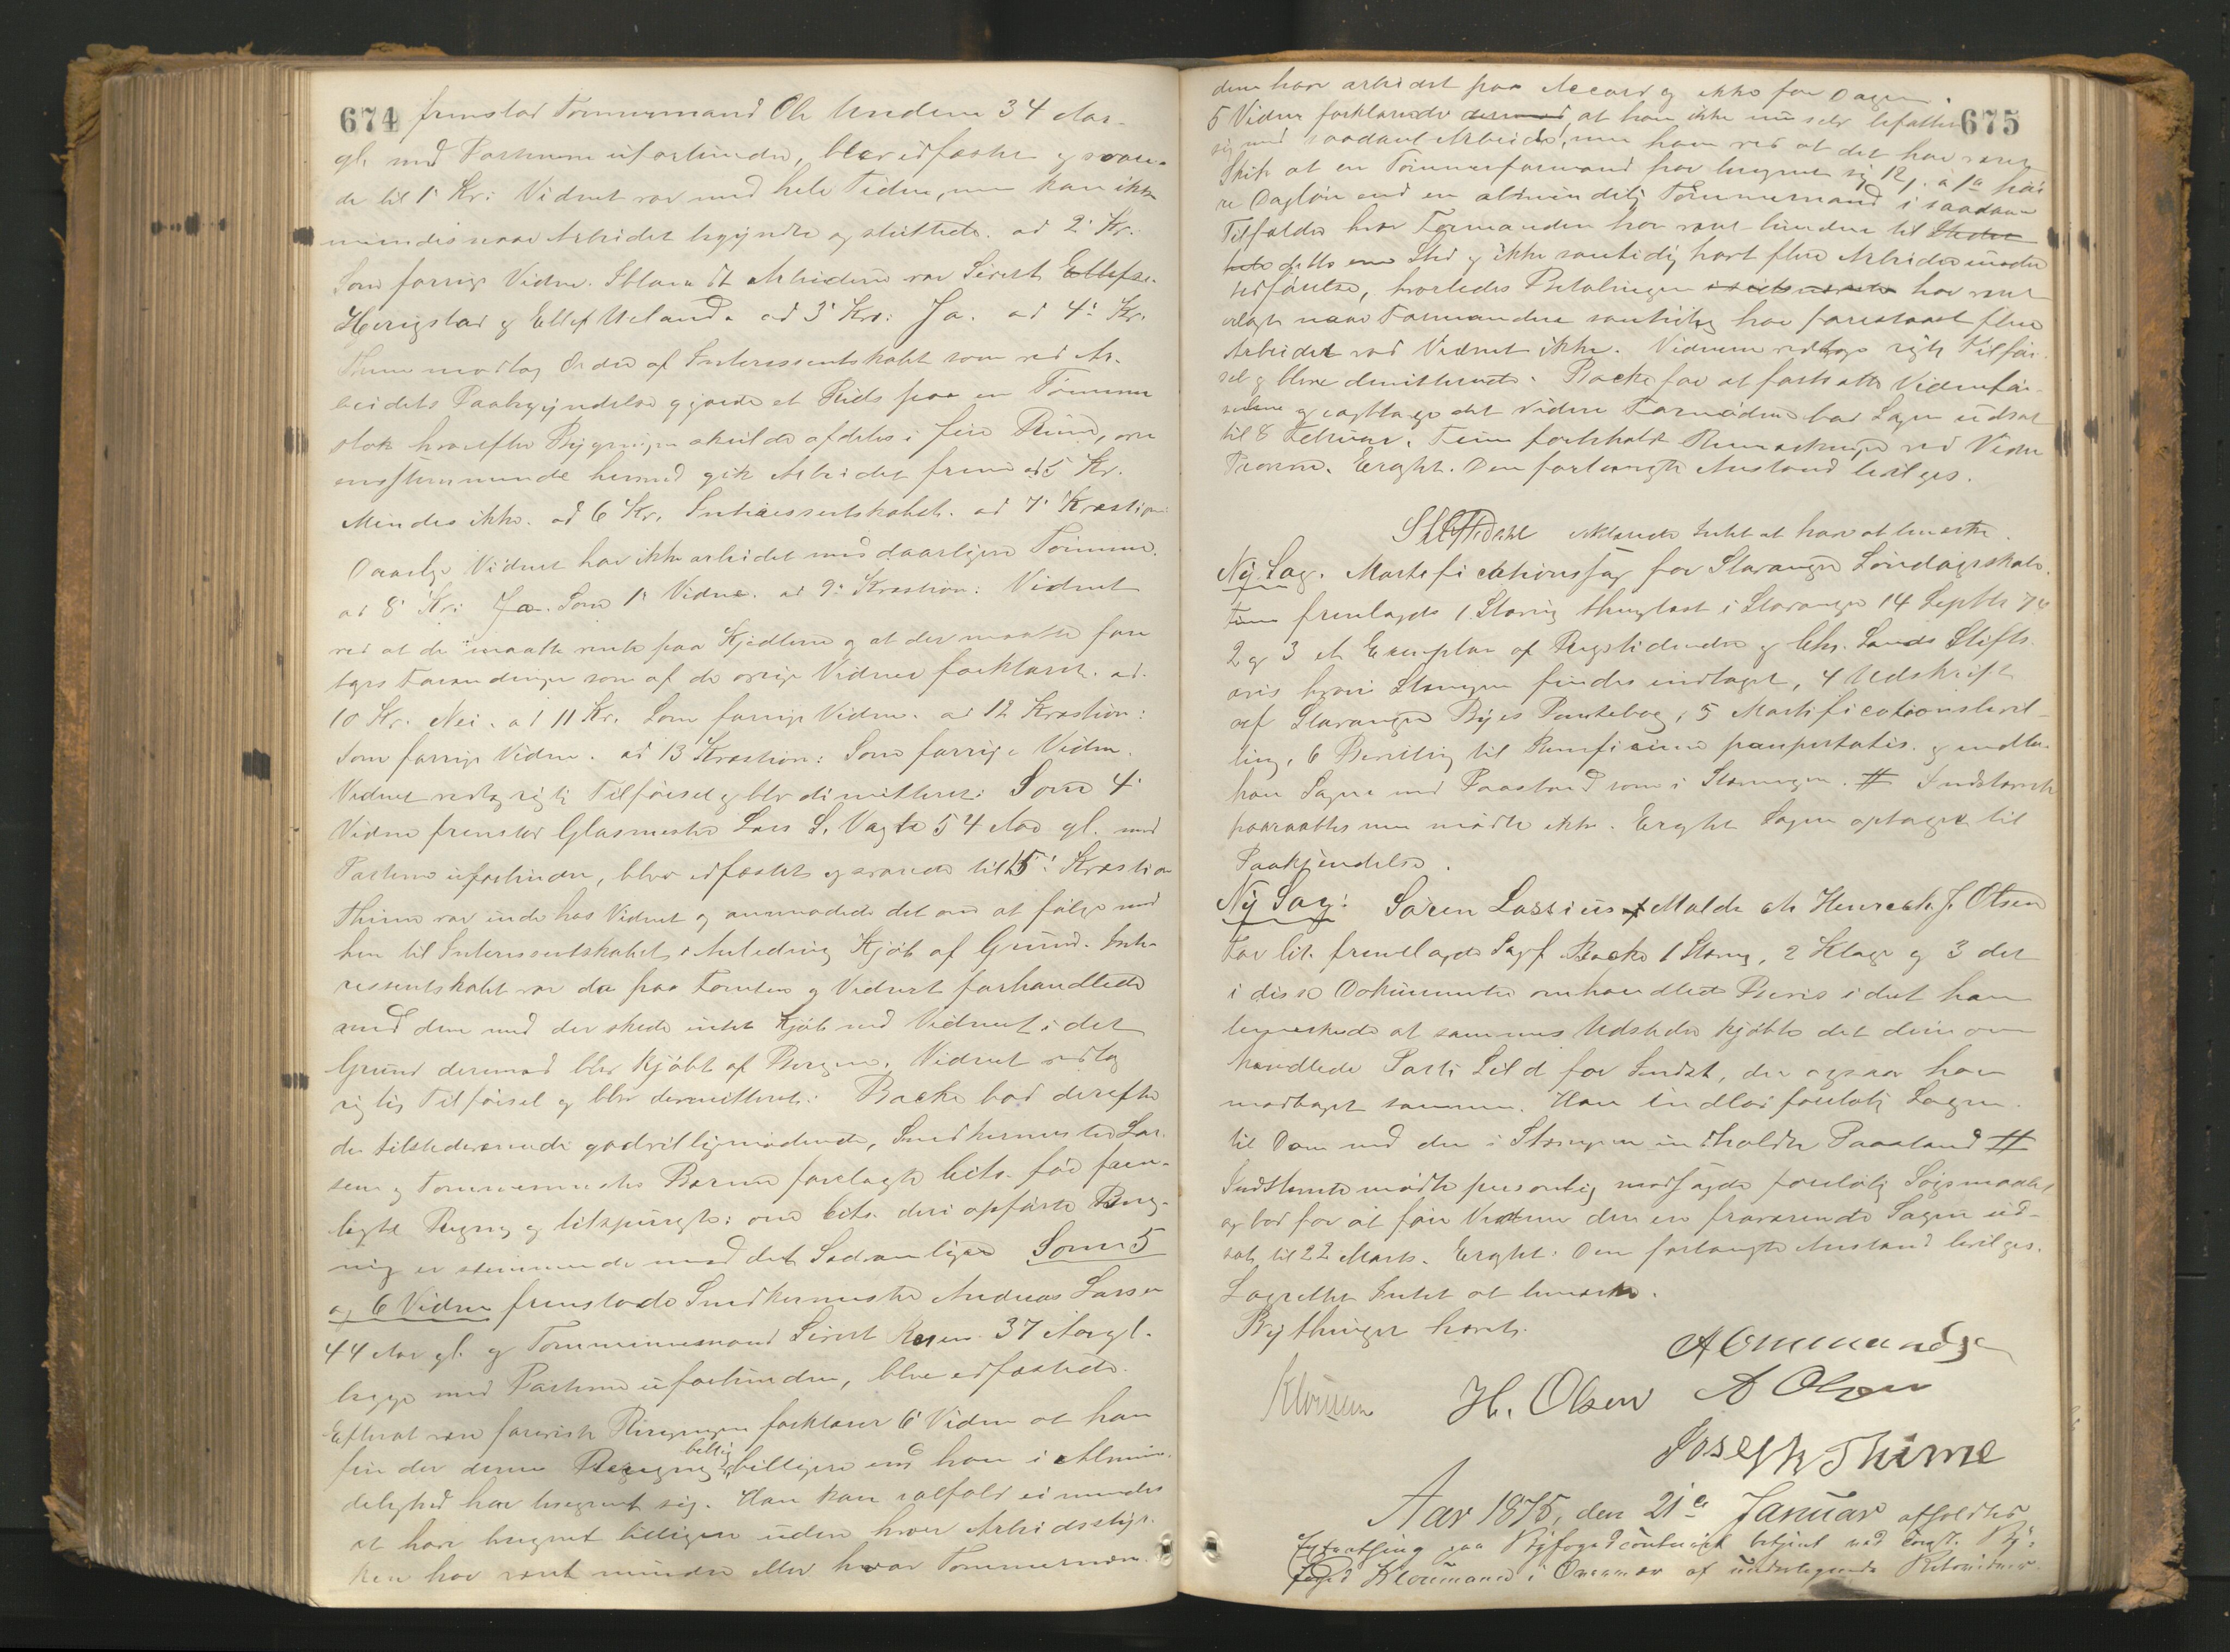 674
fremstod Tømmermand Ole Undem 34 Aar
gl. med Parterne uforbunden, blev edfæstet og svare-
de til 1' Kr: Vidnet var med hele Tiden, men kan ikke
mindes naar Arbeidet begyndte og sluttede. ad 2' Kr.
Som forrige Vidne. Iblandt Arbeiderne var Sivert Ellefse.
Herigstad og Ellef Ueland. ad 3' Kr: Ja. ad 4' Kr.
Thime modtog Ordre af Interessentskabet som ved Ar-
beidets Paabegyndelse gjorde et Rids paa en Tømmer
stok hvorefter Bygningen skulde afdeles i fire Rum, over
ensstemmende hermed gik Arbeidet frem ad 5 Kr.
Mindes ikke. ad 6 Kr. Interessentskabet. ad 7' Kvæstion:
Daarlig Vidnet har ikke arbeidet med daarligere Tømmer.
ad 8' Kr: Ja. Som 1' Vidne. ad 9' Kvæstion: Vidnet
ved at de maatte vente paa Kjedlerne og at der maatte fore
tages Forandringer som af de øvrige Vidner forklaret. ad.
10 Kr. Nei. ad 11 Kr. Som forrige Vidne. ad 12 Kvæstion:
Som forrige Vidne. ad 13 Kvæstion: Som forrige Vidne.
Vidnet vedtog rigtig Tilførsel og blev dimitteret: Som 4'
Vidne fremstod Glasmester Lars L. Vagle 54 Aar gl. med
Parterne uforbunden, blev edfæstet og svarede til 15' Kvæstion
Thime var inde hos Vidnet og anmodede det om at følge med
hen til Interessentskabet i Anledning Kjøb af Grund. Inte-
ressentskabet var da paa Tomten og Vidnet forhandlede
med dem med der skede intet Kjøb med Vidnet i det
Grund derimod blev kjøbt af Bergen. Vidnet vedtog
rigtig Tilførsel og blev dimitteret: Backe bad derefter
de tilstedeværende godvilligmødende, Snedkermester Lar-
sen og Tømmermester Barne forelagte Cits. før frem-
lagte Regning og tilspurgte: om Cits. deri opførte Reg-
ning er stemmende med det Sedvanlige Som 5
og 6 Vidne fremstode Snedkermester Andreas Larsen
44 Aar gl. og Tømmermand Sivert 37 Aar gl.
begge med Parterne uforbunden, bleve edfæstede.
Efterat være forevist Regningen forklarer 6' Vidne at han
finder denne Regning billig billigere end han i Almin-
delighed har beregnet sig. Han kan ialfald ei mindes
at have beregnet billigere uden hvor Arbeidsstyr-
ken har været mindre eller hvor Tømmermæn-
675
dene har arbeidet paa Accord og ikke for Dagen.
5 Vidne forklarede derimod, at han ikke nu selv befatter
sig med saadant Arbeide, men han ved at det har været
Skik at en Tømmerformand har beregnet sig 12 ß á 1 høi
re Dagløn end en almindelig Tømmermand i saadanne
Tilfælde hvor Formanden har været bunden til
dette ene Sted og ikke samtidig havt flere Arbeider under
Udførelse, hvorledes Betalingen har været
erlagt naar Formanden samtidig har forestaaet flere
Arbeider ved Vidnet ikke. Vidnerne vedtoge rigtig Tilfør-
sel og bleve dimitterede. Backe for at fortsætte Vidnefør-
selen og iagttage det videre Fornødne bad Sagen udsat
til 8 Februar. Thime forbeholdt Bemærkninger ved Vidne
Eragtet. Den forlangte Anstand bevilges.
erklærede Intet at have at bemærke.
Ny Sag. Mortificationssag for Stavanger Søndagsskole.
fremlagde 1 Stævning thinglæst i Stavanger 14 Septbr 74
2 og 3 et Exemplar af Rigstidende og Chr. Sands Stifts
avis hvori Stævningen findes indtaget, 4 Udskrift
af Stavanger Byes Pantebog, 5 Mortificationsbevil-
ling, 6 Bevilling til Beneficium paupertatis. og indlod
han Sagen med Paastand som i Stævningen. # Indstævnte
paaraabtes men mødte ikke. Eragtet Sagen optaget til
Paakjendelse.
Ny Sag: Søren Lassius Malde ctr Henrik J. Olsen
For Cit. fremlagde Sagf. Backe 1 Stævng, 2 Klage og 3 det
i disse Dokumenter omhandlede Bevis idet han
bemærkede at sammes Udsteder kjøbte det deri om
handlede Parti Sild for Indst, der ogsaa har
modtaget samme. Han indlod foreløbig Sagen
til Dom med den i Stævningen indholdte Paastand #
Indstævnte mødte personlig modsagde foreløbig Søgsmaalet
og bad for at føre Vidner der ere fraværende Sagen ud-
sat til 22 Marts. Eragtet: Den forlangte Anstand bevilges.
Lagrettet Intet at bemærke.
Bythinget hævet.
A Ommundsen
Kloumann H. Olsen A Olsen
Joseph Thime
Aar 1875, den 21de Januar afholdtes
paa Byfogedcontoiret betjent ved const. By-
foged Kloumann i Overvær af undertegnede Retsvidner.